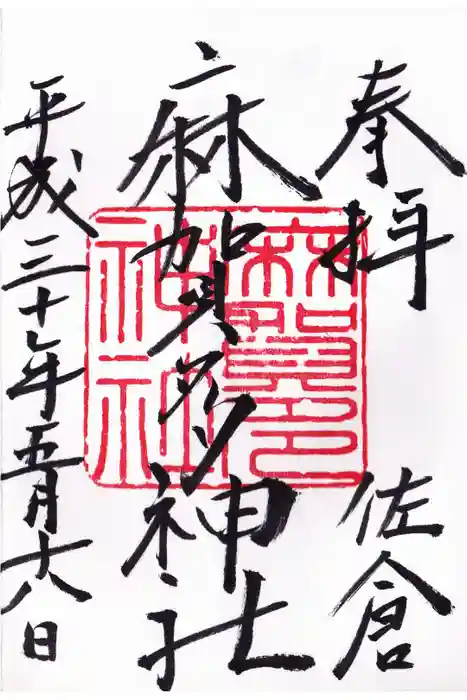 奉拝
佐倉
麻賀多神社
麻賀多
神社
平成三十年五月十八日